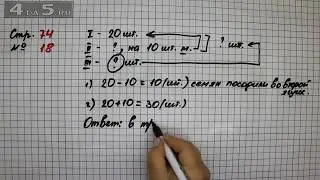 4
Стр. 74
№ 18
I - 20 шт.
II - ?, на 10 шт. м.
? шт.
III - ? шт.
1) 20 - 10 = 10 (шт.) семян посадили во второй
2) 20 + 10 = 30 (шт.)
Ответ: в тр